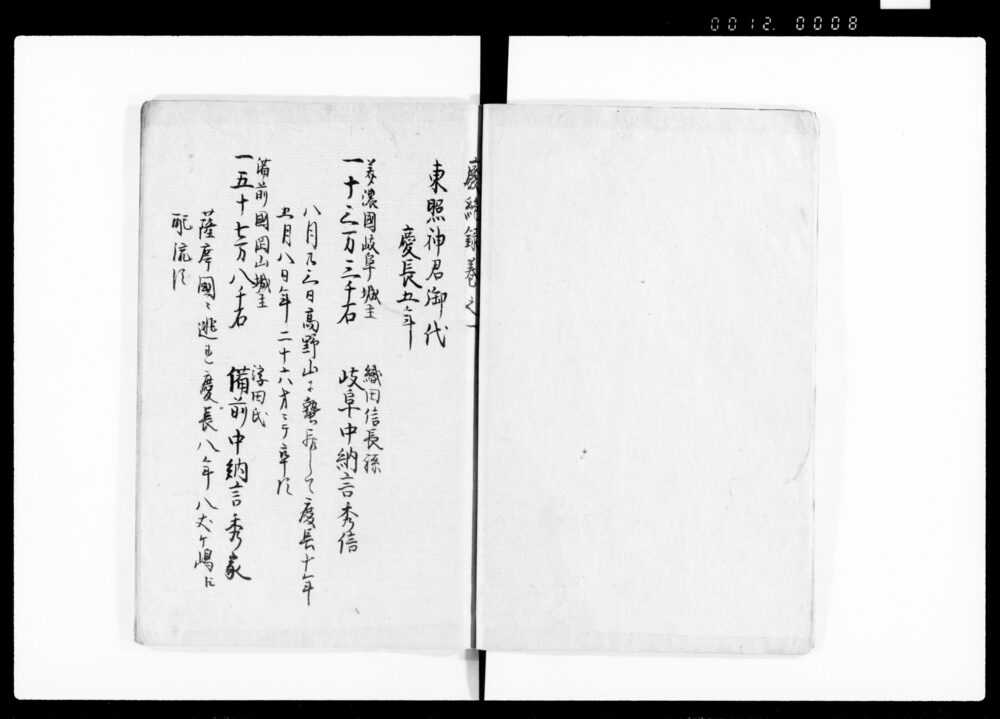 0012. 0008
廢絶録巻之一
東照神君御代
慶長五年
美濃國岐阜城主
織田信長孫
一十三万三千石 岐阜中納言秀信
八月廿三日高野山ニ蟄居して慶長十年
五月八日年二十六才ニテ卒ス
備前國岡山城主
浮田氏
一五十七万八千石 備前中納言秀家
薩摩國ニ逃レ慶長八年八丈ケ嶋に
配流ス